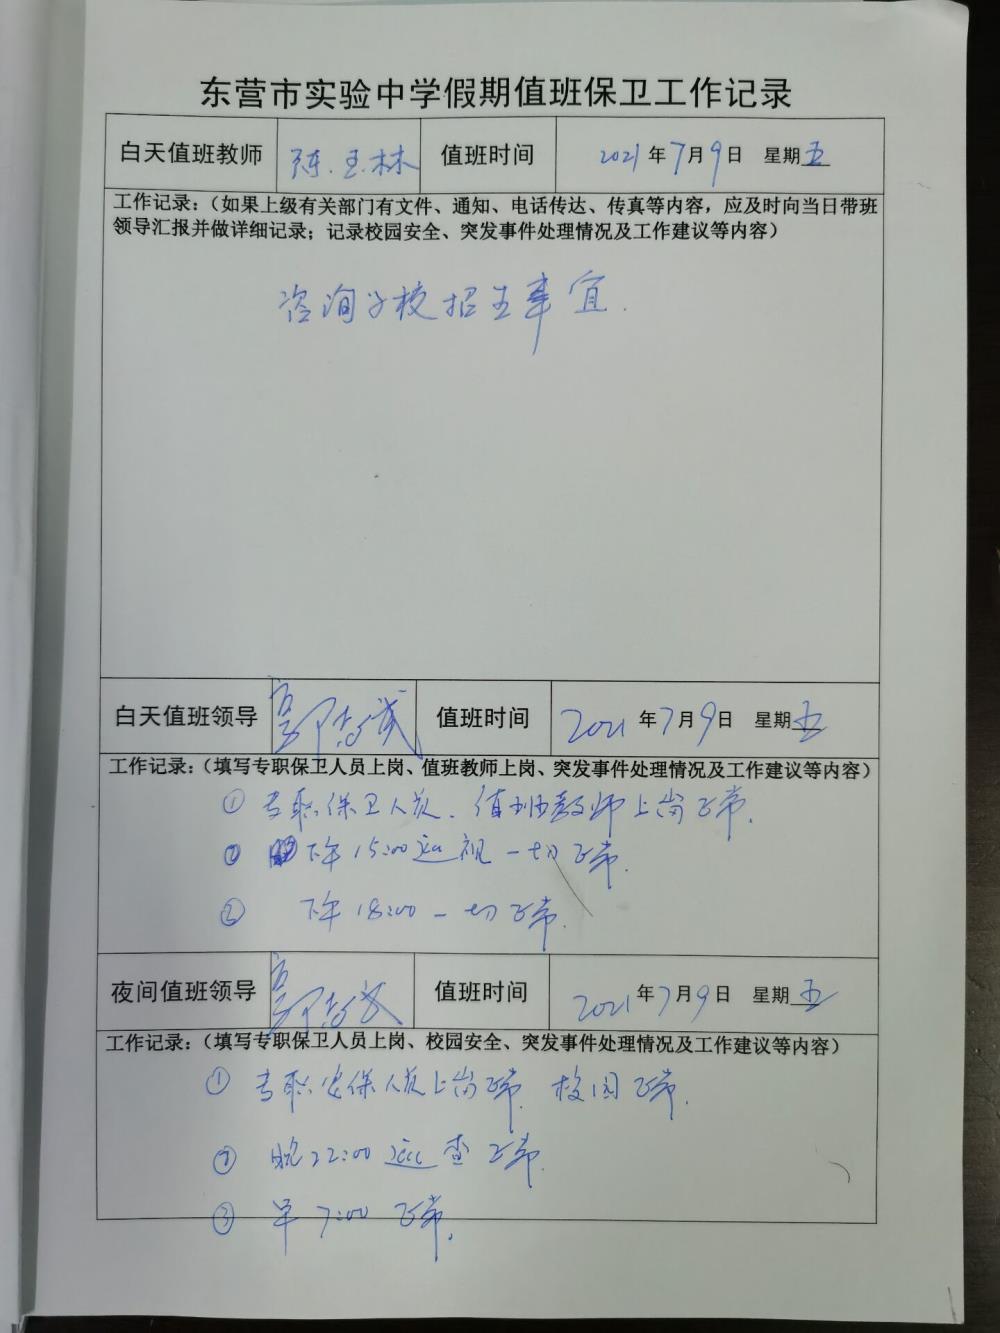 东营市实验中学假期值班保卫工作记录
白天值班教师 陈玉林 值班时间 2021年7月9日 星期五
工作记录：（如果上级有关部门有文件、通知、电话传达、传真等内容，应及时向当日带班
领导汇报并做详细记录；记录校园安全、突发事件处理情况及工作建议等内容）
咨询学校招生事宜.
白天值班领导 值班时间 2021年7月9日 星期五
工作记录：（填写专职保卫人员上岗、值班教师上岗、突发事件处理情况及工作建议等内容）
① 专职保卫人员.值班教师上岗正常.
② 下午15:00巡视一切正常.
② 下午18:00一切正常.
夜间值班领导 值班时间 2021年7月9日 星期五
工作记录：（填写专职保卫人员上岗、校园安全、突发事件处理情况及工作建议等内容）
① 专职安保人员上岗正常 校园正常.
② 晚22:00巡查正常.
③ 早7:00正常.